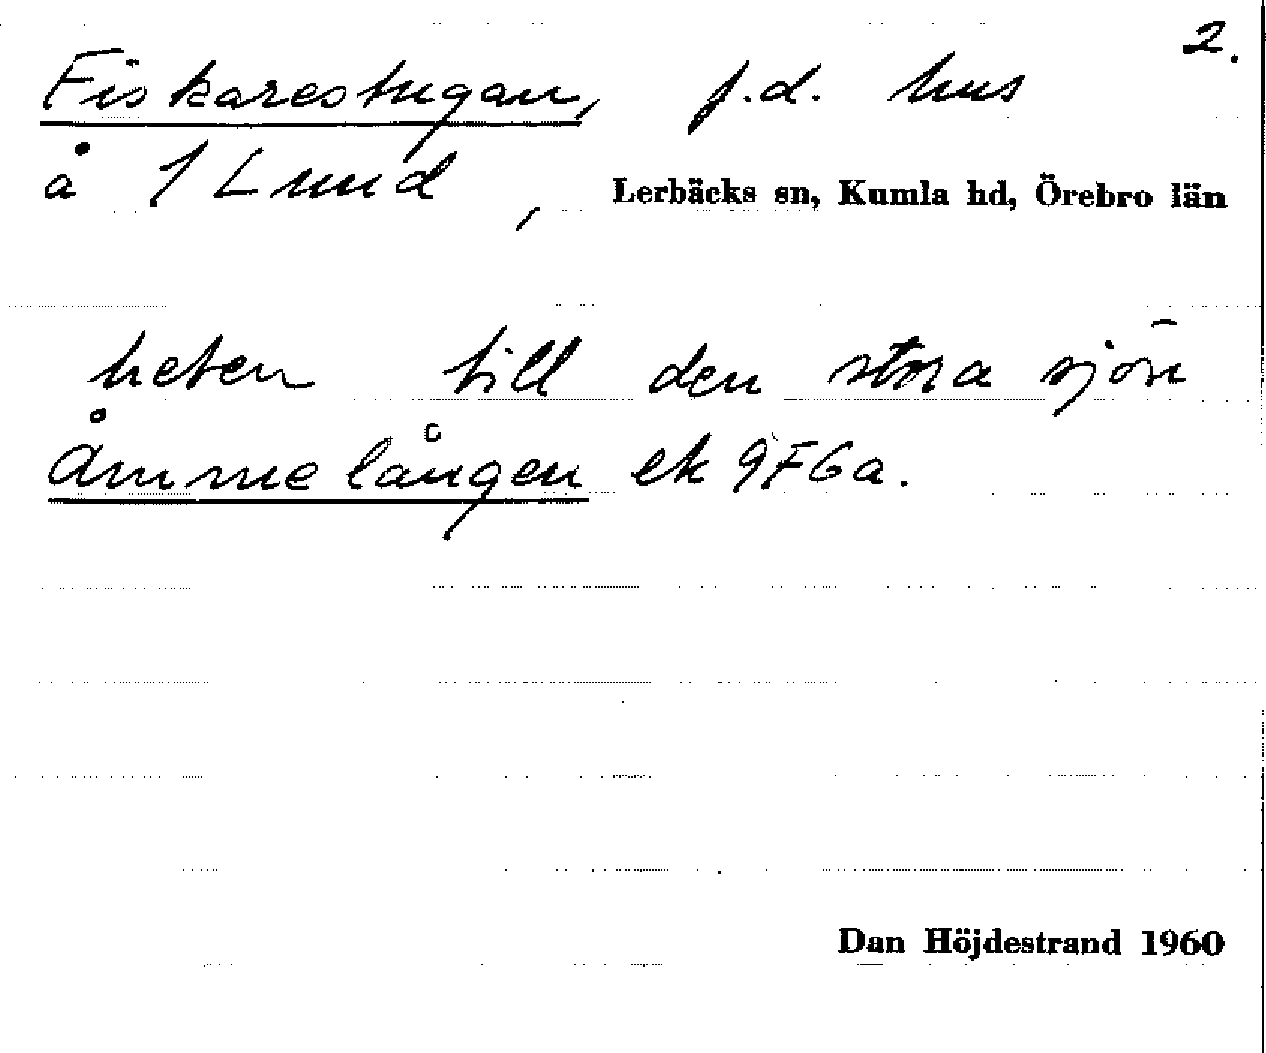 2.
Fiskarestugan, f.d. hus
å 1 Lund, Lerbäcks sn, Kumla hd, Örebro län
heten till den stora sjön
Åmmelången ek 9F6a.
Dan Höjdestrand 1960